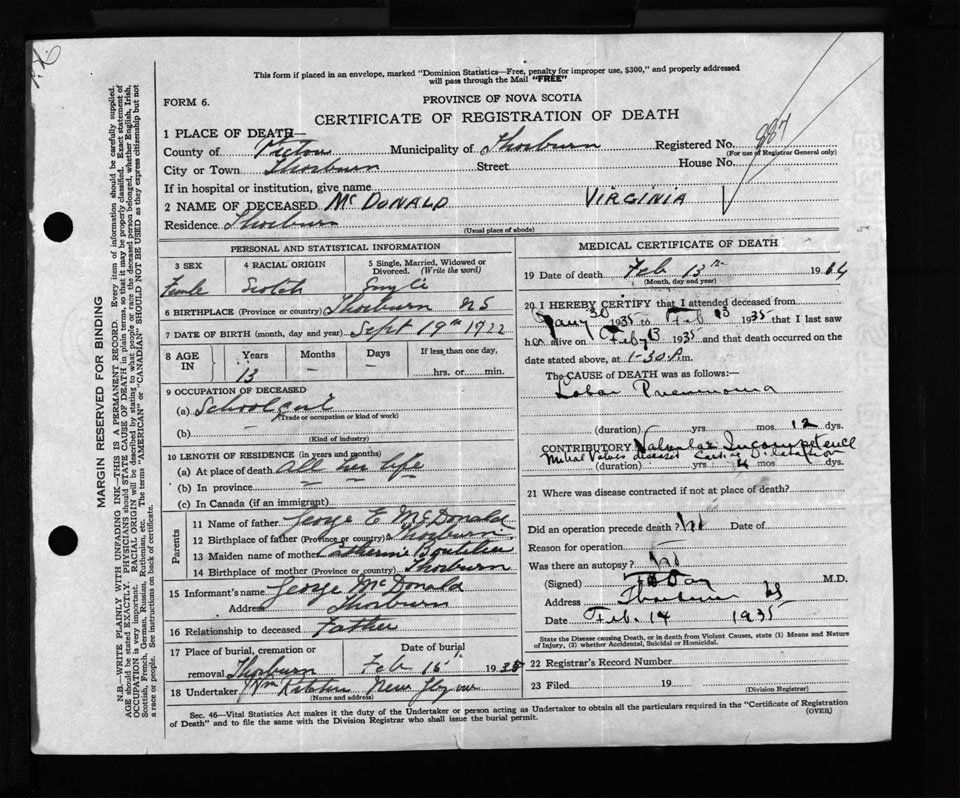 This form if placed in an envelope, marked "Dominion Statistics—Free, penalty for improper use, $300," and properly addressed
will pass through the Mail "FREE"
FORM 6.
PROVINCE OF NOVA SCOTIA
CERTIFICATE OF REGISTRATION OF DEATH
987
1 PLACE OF DEATH—
County of Pictou Municipality of Thorburn Registered No.
(For use of Registrar General only)
City or Town Thorburn Street House No.
If in hospital or institution, give name
2 NAME OF DECEASED McDONALD VIRGINIA
Residence Thorburn
(Usual place of abode)
PERSONAL AND STATISTICAL INFORMATION
3 SEX 4 RACIAL ORIGIN 5 Single, Married, Widowed or Divorced. (Write the word)
Female Scotch Single
6 BIRTHPLACE (Province or country) Thorburn NS
7 DATE OF BIRTH (month, day and year) Sept 19th 1922
8 AGE IN Years Months Days If less than one day,
13 — — hrs. or min.
9 OCCUPATION OF DECEASED
(a) School girl
(Trade or occupation or kind of work)
(b) —
(Kind of industry)
10 LENGTH OF RESIDENCE (in years and months)
(a) At place of death all her life
(b) In province
(c) In Canada (if an immigrant)
Parents
11 Name of father George E McDonald
12 Birthplace of father (Province or country) Thorburn
13 Maiden name of mother Catherine Boutilier
14 Birthplace of mother (Province or country) Thorburn
15 Informant's name George McDonald
Address Thorburn
16 Relationship to deceased Father
17 Place of burial, cremation or removal Thorburn Date of burial Feb 15 1935
18 Undertaker Wm
(Name and address)
MEDICAL CERTIFICATE OF DEATH
19 Date of death Feb 13th 19
(Month, day and year)
20 I HEREBY CERTIFY that I attended deceased from
Jany 30 1935 to Feb 13 1935 that I last saw
her alive on Feby 13 1935 and that death occurred on the
date stated above, at 1-30 P.m.
The CAUSE OF DEATH was as follows:—
Lobar Pneumonia
(duration) yrs. mos. 12 dys.
CONTRIBUTORY Valvular Incompetence
Mitral Valves diseased Cardiac Dilatation
(duration) yrs. mos. dys.
21 Where was disease contracted if not at place of death?
Did an operation precede death? No Date of
Reason for operation
Was there an autopsy? No
(Signed) M.D.
Address Thorburn NS
Date Feb. 14 1935
State the Disease causing Death, or in death from Violent Causes, state (1) Means and Nature
of Injury, (2) whether Accidental, Suicidal or Homicidal.
22 Registrar's Record Number
23 Filed 19
(Division Registrar)
Sec. 46—Vital Statistics Act makes it the duty of the Undertaker or person acting as Undertaker to obtain all the particulars required in the "Certificate of Registration
of Death" and to file the same with the Division Registrar who shall issue the burial permit.
(OVER)
MARGIN RESERVED FOR BINDING
N.B.—WRITE PLAINLY WITH UNFADING INK—THIS IS A PERMANENT RECORD. Every item of information should be carefully supplied.
AGE should be stated EXACTLY. PHYSICIANS should STATE CAUSE OF DEATH in plain terms, so that it may be properly classified. Exact statement of
OCCUPATION is very important. RACIAL ORIGIN will be described by stating to what people or race the deceased person belonged, whether English, Irish,
Scottish, French, German, Russian, Ruthenian, etc. The terms "AMERICAN" or "CANADIAN" SHOULD NOT BE USED as they express citizenship but not
a race or people. See instructions on back of certificate.